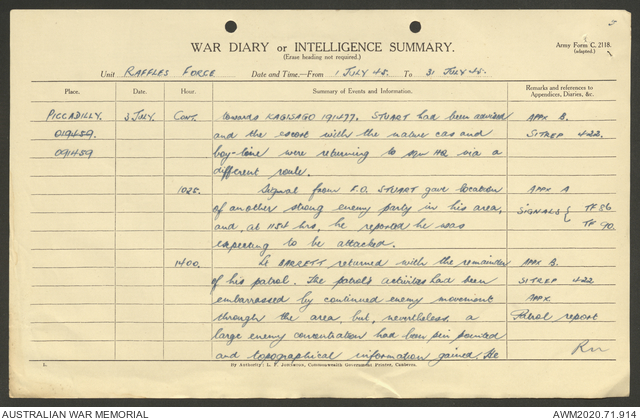 3
WAR DIARY or INTELLIGENCE SUMMARY.
(Erase heading not required.)
Army Form C. 2118.
(adapted.)
Unit RAFFLES FORCE Date and Time.—From 1 JULY 45. To 31 JULY 45.
Place. Date. Hour. Summary of Events and Information. Remarks and references to Appendices, Diaries, &c.
PICCADILLY. 3 July. Cont. towards KAGISAGO 191477. STUART had been advised APPX B.
019459. and the escort with the native cas and SITREP 422.
091459 boy-line were returning to HQ via a
different route.
1025. Signal from F.O. STUART gave location APPX A
of another strong enemy party in his area, SIGNALS { TF 86
and, at 1154 hrs, he reported he was TF 90.
expecting to be attacked.
1400. Lt BARRETT returned with the remainder APPX B.
of his patrol. The patrol's activities had been SITREP 422
embarrassed by continued enemy movement APPX
through the area, but, nevertheless a Patrol report
large enemy concentration had been pin pointed
and topographical information gained. He
L. By Authority: L. F. Johnston, Commonwealth Government Printer, Canberra.
AUSTRALIAN WAR MEMORIAL AWM2020.71.914